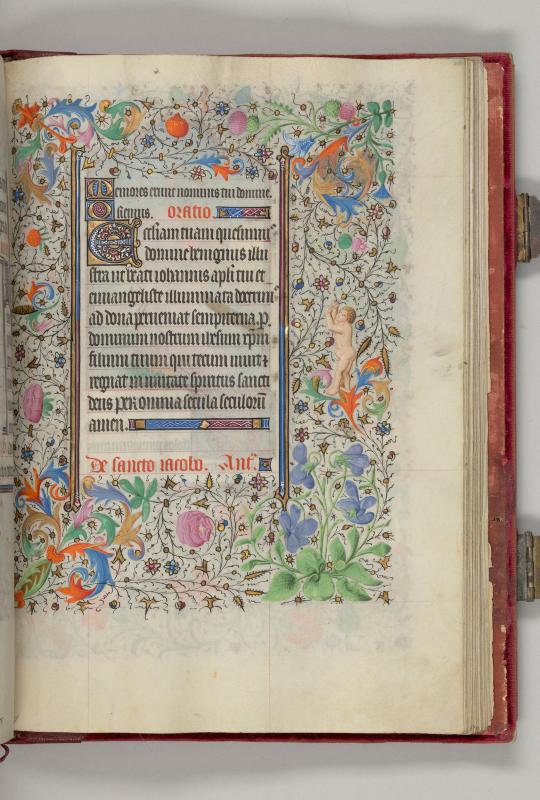 Memores erunt nominis tui domine.
Osienus. Oratio.
Ecclesiam tuam quesumus
domine benignus illu
stra ut beati iohannis apli tui et
euuangeliste illuminata doctrinis
ad dona perveniat sempiterna. P.
dominum nostrum ihesum xpm
filium tuum qui tecum uiuit et
regnat in unitate spiritus sancti
deus per omnia secula seculorum
amen.
De sancto iacobo. Ant.